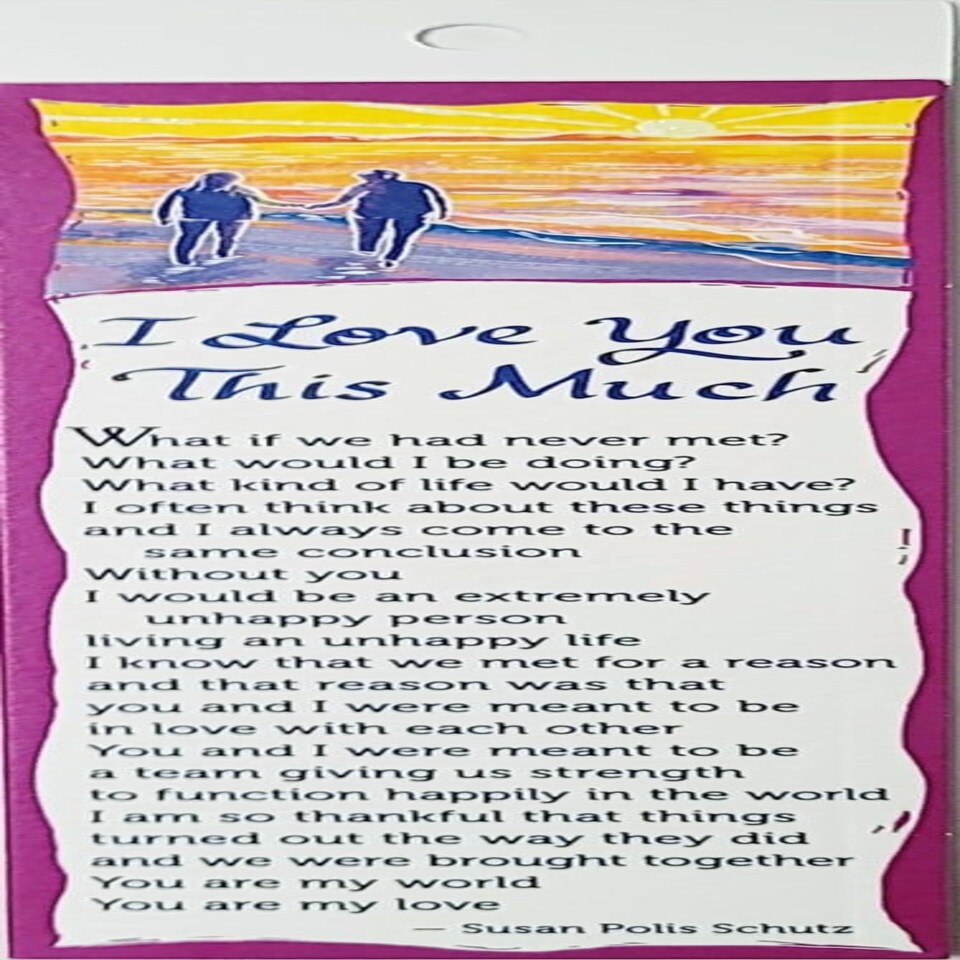 I Love You
This Much
What if we had never met?
What would I be doing?
What kind of life would I have?
I often think about these things
and I always come to the
same conclusion
Without you
I would be an extremely
unhappy person
living an unhappy life
I know that we met for a reason
and that reason was that
you and I were meant to be
in love with each other
You and I were meant to be
a team giving us strength
to function happily in the world
I am so thankful that things
turned out the way they did
and we were brought together
You are my world
You are my love
— Susan Polis Schutz